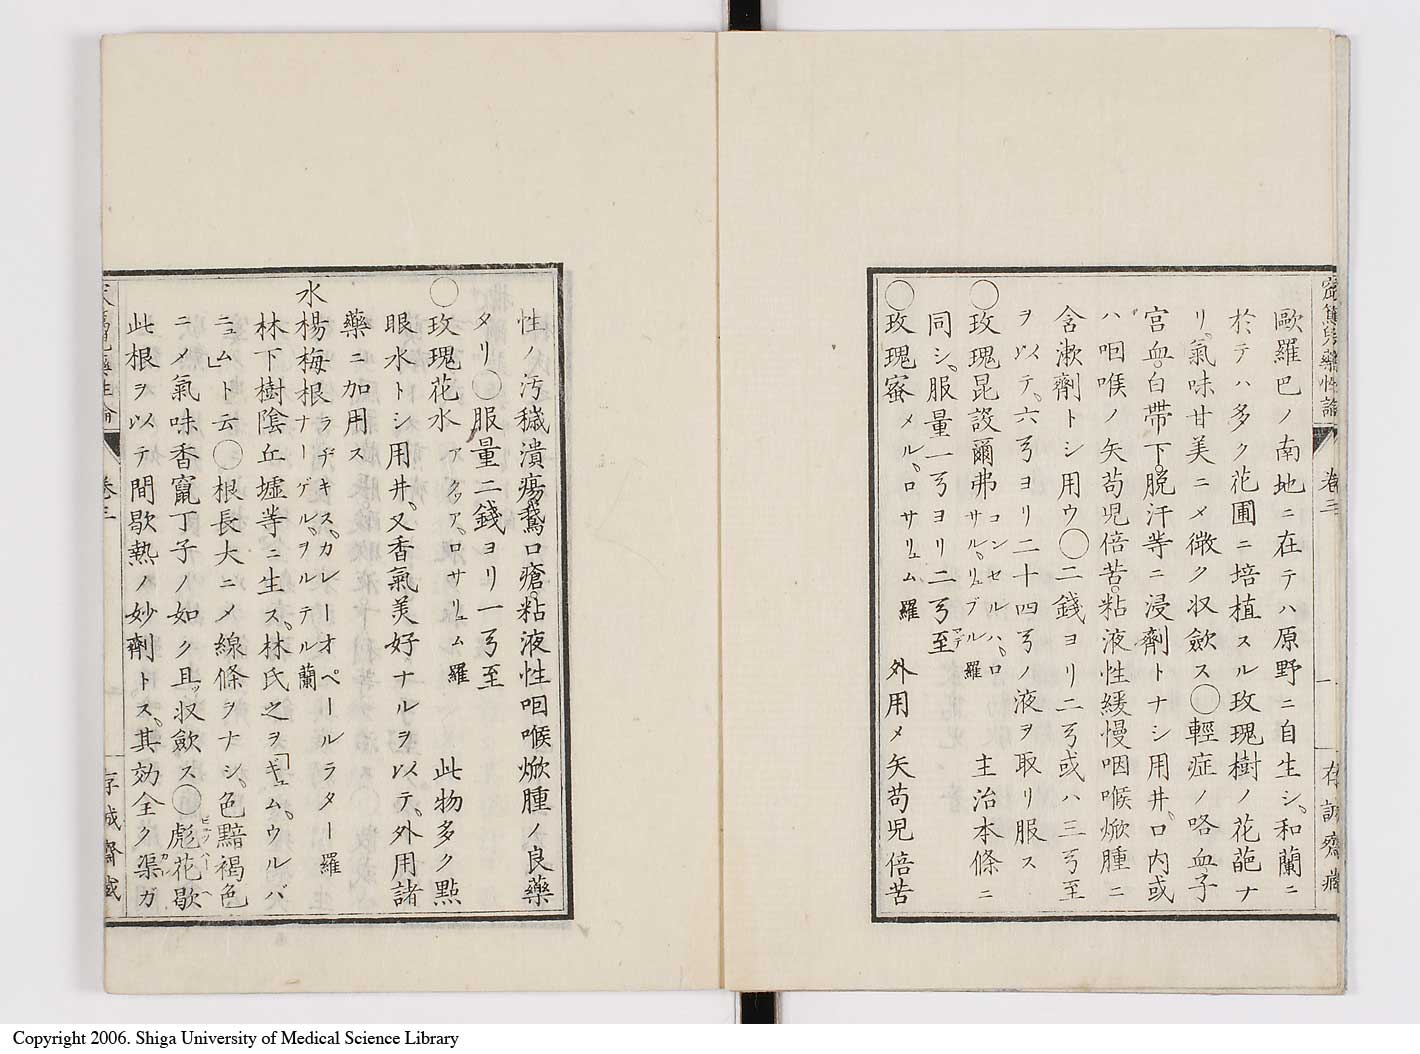 歐羅巴ノ南地ニ在テハ原野ニ自生シ、和蘭ニ
於テハ多ク花圃ニ培植スル玫瑰樹ノ花葩ナ
リ、氣味甘美ニメ微ク収歛ス◯輕症ノ咯血子
宮血。白帶下。脫汗等ニ浸劑トナシ用井。口内或
ハ咽喉ノ矢苟児倍苦。粘液性緩慢咽喉焮腫ニ
含漱劑トシ用ウ◯二錢ヨリ二弓或ハ三弓至
ヲ以テ、六弓ヨリ二十四弓ノ液ヲ取リ服ス
◯玫瑰昆設爾弗コンセルハ、ロサル、リュブル羅 主治本條ニ
同シ、服量一弓ヨリ二弓至マデ
◯玫瑰蜜メル、ロサリュム羅 外用メ矢苟児倍苦
巻三
性ノ汚穢潰瘍鵞口瘡。粘液性咽喉焮腫ノ良藥
タリ◯服量二錢ヨリ一弓至
◯玫瑰花水アクッア、ロサリュム羅 此物多ク點
眼水トシ用井、又香氣美好ナルヲ以テ、外用諸
藥ニ加用ス
水楊梅根ラヂキス、カレーオペールラター羅ナーゲル、ヲルテル蘭
林下樹陰丘墟等ニ生ス、林氏之ヲ「ギュム、ウルバ
ニュム」ト云◯根長大ニメ線條ヲナシ、色黯褐色
ニメ氣味香竄丁子ノ如ク且ッ収歛ス◯彪花歇
此根ヲ以テ間歇熱ノ妙劑トス、其効全ク渠ガ
巻三
Copyright 2006. Shiga University of Medical Science Library